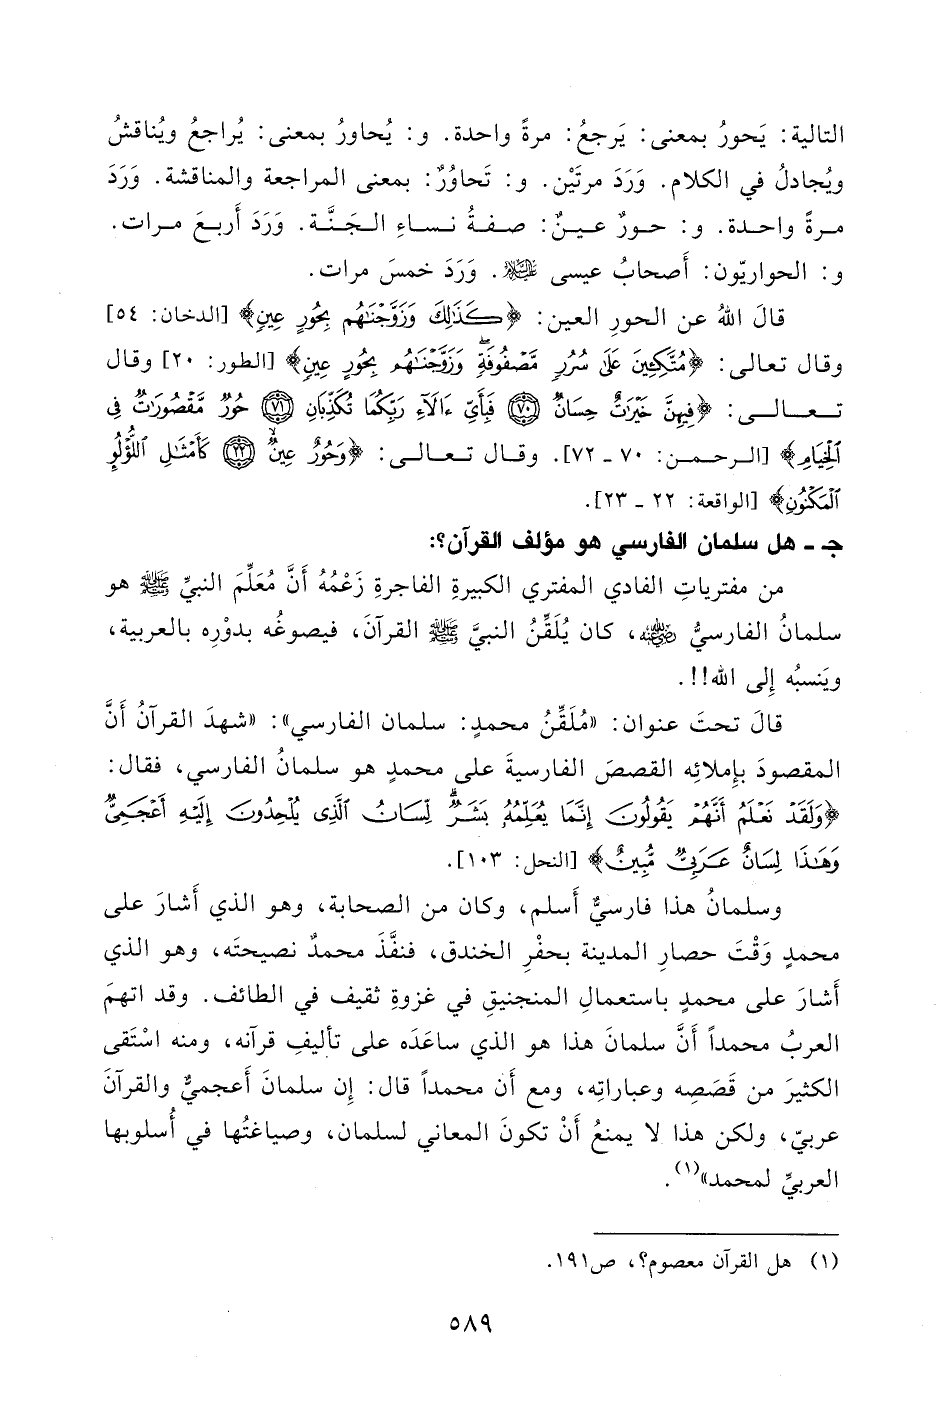 التالية: يَحورُ بمعنى: يَرجعُ: مرةً واحدة. و: يُحاورُ بمعنى: يُراجعُ ويُناقشُ
ويُجادلُ في الكلام. وَرَدَ مرتَيْن. و: تَحاوُرٌ: بمعنى المراجعة والمناقشة. وَرَدَ
مرةً واحدة. و: حورٌ عينٌ: صفةُ نساءِ الجَنَّة. وَرَدَ أَربعَ مرات.
و: الحواريّون: أَصحابُ عيسى عليه السلام. وَرَدَ خمسَ مرات.
قالَ اللهُ عن الحورِ العين: ﴿كَذَٰلِكَ وَزَوَّجْنَٰهُم بِحُورٍ عِينٍ﴾ [الدخان: ٥٤]
وقال تعالى: ﴿مُتَّكِـِٔينَ عَلَىٰ سُرُرٍ مَّصْفُوفَةٍ ۖ وَزَوَّجْنَٰهُم بِحُورٍ عِينٍ﴾ [الطور: ٢٠] وقال
تعالى: ﴿فِيهِنَّ خَيْرَٰتٌ حِسَانٌ ٧٠ فَبِأَىِّ ءَالَآءِ رَبِّكُمَا تُكَذِّبَانِ ٧١ حُورٌ مَّقْصُورَٰتٌ فِى
ٱلْخِيَامِ﴾ [الرحمن: ٧٠ ـ ٧٢]. وقال تعالى: ﴿وَحُورٌ عِينٌ ٢٢ كَأَمْثَٰلِ ٱللُّؤْلُؤِ
ٱلْمَكْنُونِ﴾ [الواقعة: ٢٢ ـ ٢٣].
جـ ـ هل سلمان الفارسي هو مؤلف القرآن؟:
من مفترياتِ الفادي المفتري الكبيرةِ الفاجرةِ زَعْمُهُ أَنَّ مُعَلِّمَ النبيِّ ﷺ هو
سلمانُ الفارسيُّ رضي الله عنه، كان يُلَقِّنُ النبيَّ ﷺ القرآنَ، فيصوغُه بدوْرِه بالعربية،
ويَنسبُه إِلى الله!!.
قالَ تحتَ عنوان: «مُلَقِّنُ محمدٍ: سلمان الفارسي»: «شهدَ القرآنُ أَنَّ
المقصودَ بإِملائِه القصصَ الفارسيةَ على محمدٍ هو سلمانُ الفارسي، فقال:
﴿وَلَقَدْ نَعْلَمُ أَنَّهُمْ يَقُولُونَ إِنَّمَا يُعَلِّمُهُۥ بَشَرٌ ۗ لِّسَانُ ٱلَّذِى يُلْحِدُونَ إِلَيْهِ أَعْجَمِىٌّ
وَهَٰذَا لِسَانٌ عَرَبِىٌّ مُّبِينٌ﴾ [النحل: ١٠٣].
وسلمانُ هذا فارسيٌّ أَسلم، وكان من الصحابة، وهو الذي أَشارَ على
محمدٍ وَقْتَ حصارِ المدينة بحفْرِ الخندق، فنفَّذَ محمدٌ نصيحتَه، وهو الذي
أَشارَ على محمدٍ باستعمالِ المنجنيقِ في غزوةِ ثقيف في الطائف. وقد اتهمَ
العربُ محمداً أَنَّ سلمانَ هذا هو الذي ساعَدَه على تأليفِ قرآنه، ومنه اسْتَقى
الكثيرَ من قَصَصِه وعباراتِه، ومع أَن محمداً قال: إِن سلمانَ أَعجميٌّ والقرآنَ
عربيّ، ولكن هذا لا يمنعُ أَنْ تكونَ المعاني لسلمان، وصياغتُها في أُسلوبها
العربيِّ لمحمد»(١).
(١) هل القرآن معصوم؟، ص١٩١.
٥٨٩